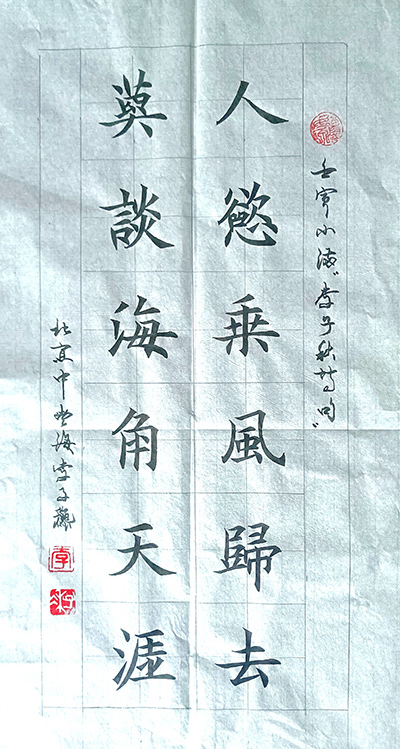 壬寅小满"李子秋詩句"
人慾乘風歸去
莫談海角天涯
北京中海李子
李